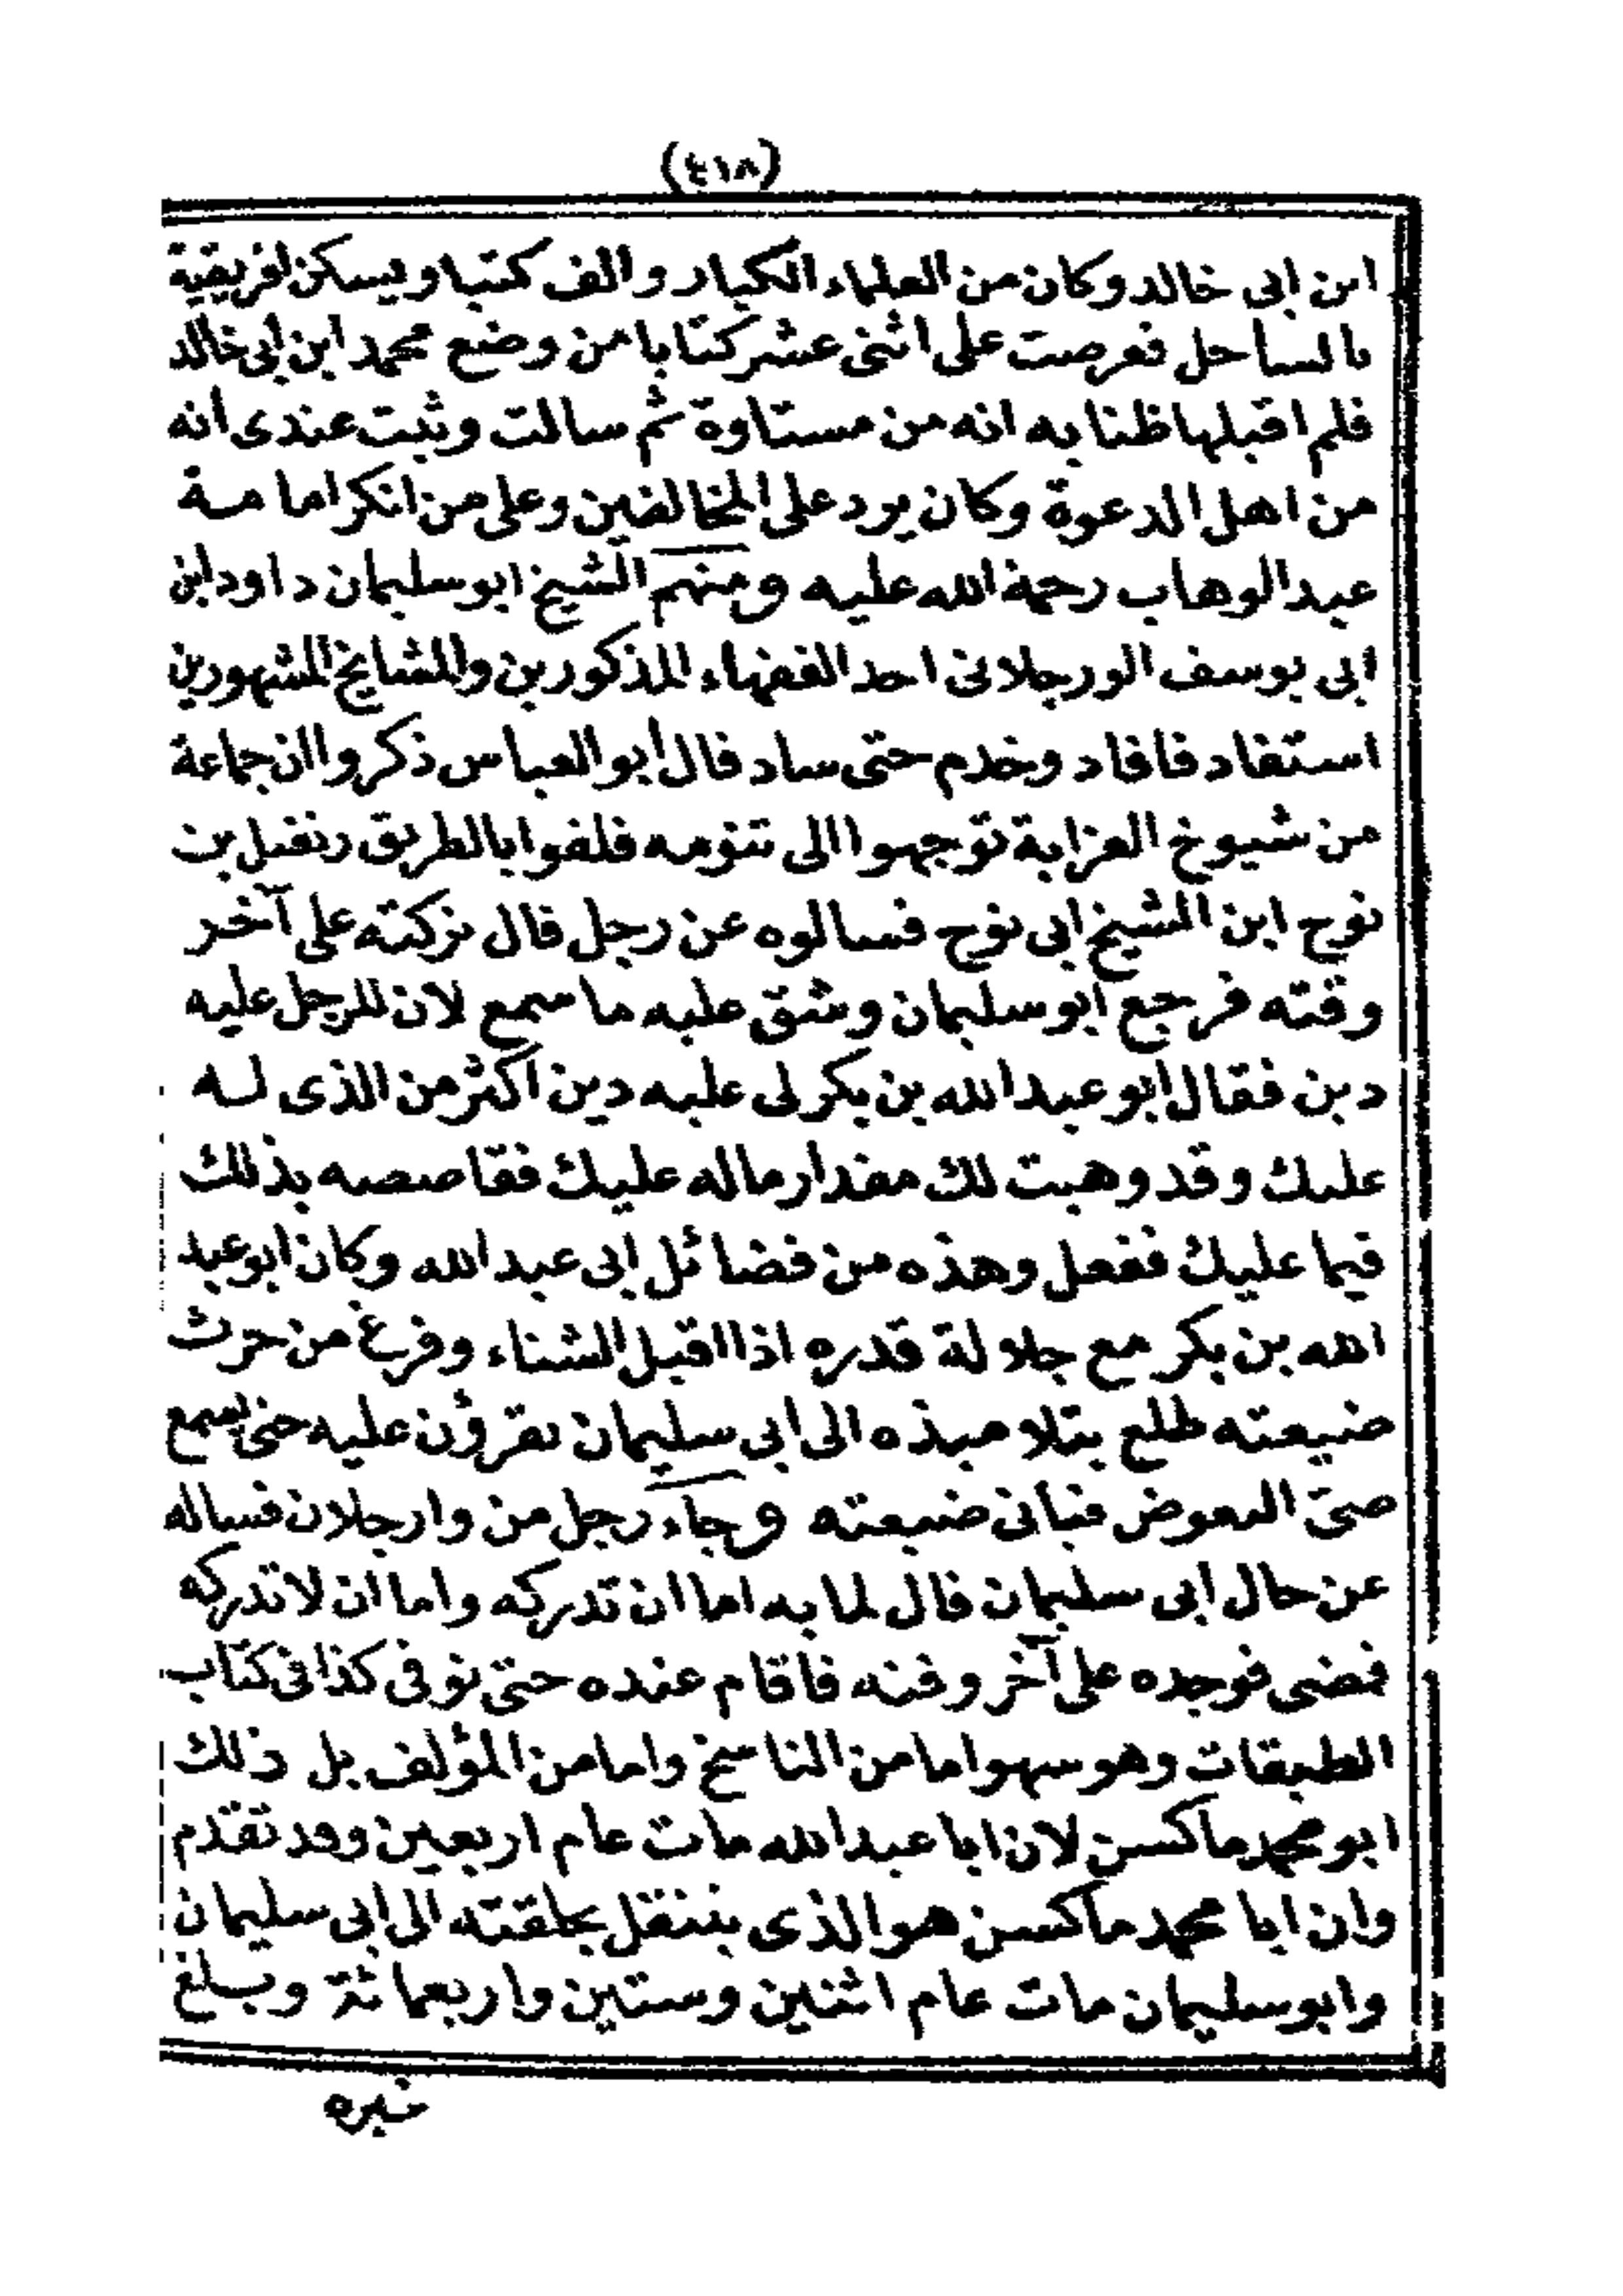 (٤١٨)
ابن ابى خالد وكان من العلماء الكبار والف كتبا ويسكن افريقية
بالساحل فعرضت على اثنى عشر كتابا من وضع محمد ابن ابى خالد
فلم اقبلها ظنا به انه من مستاوة ثم سالت وثبت عندى انه
من اهل الدعوة وكان يرد على المخالفين وعلى من انكر امامة
عبد الوهاب رحمة الله عليه ومنهم الشيخ ابو سليمان داود ابن
ابى يوسف الورجلانى احد الفقهاء المذكورين والمشايخ المشهورين
استفاد فافاد وخدم حتى ساد قال أبو العباس ذكروا ان جماعة
من شيوخ العزابة توجهوا الى تنومه فلقوا بالطريق ينفل بن
نوح ابن الشيخ ابى نوح فسالوه عن رجل قال تركته على آخر
وقته فرجع أبو سليمان وشق عليه ما سمع لان للرجل عليه
دين فقال ابو عبد الله بن بكر لى عليه دين اكثر من الذى له
عليك وقد وهبت لك مقدار ماله عليك فقاصصه بذلك
فيما عليك ففعل وهذه من فضائل ابى عبد الله وكان ابو عبد
الله بن بكر مع جلالة قدره اذا اقبل الشتاء وفرغ من حرث
ضيعته طلع بتلاميذه الى ابى سليمان يقرؤن عليه حتى يسمع
صىّ البعوض فياتى ضيعته وجاء رجل من وارجلان فساله
عن حال ابى سليمان قال لما به اما ان تدركه واما ان لا تدركه
فمضى فوجده على آخر وقته فاقام عنده حتى توفى كذا فى كتاب
الطبقات وهو سهو اما من الناسخ واما من المؤلف بل ذلك
ابو محمد ماكسن لان ابا عبد الله مات عام اربعين وقد تقدم
وان ابا محمد ماكسن هو الذى ينتقل بحلقته الى ابى سليمان
وابو سليمان مات عام اثنين وستين واربعمائة وبلغ
خبره